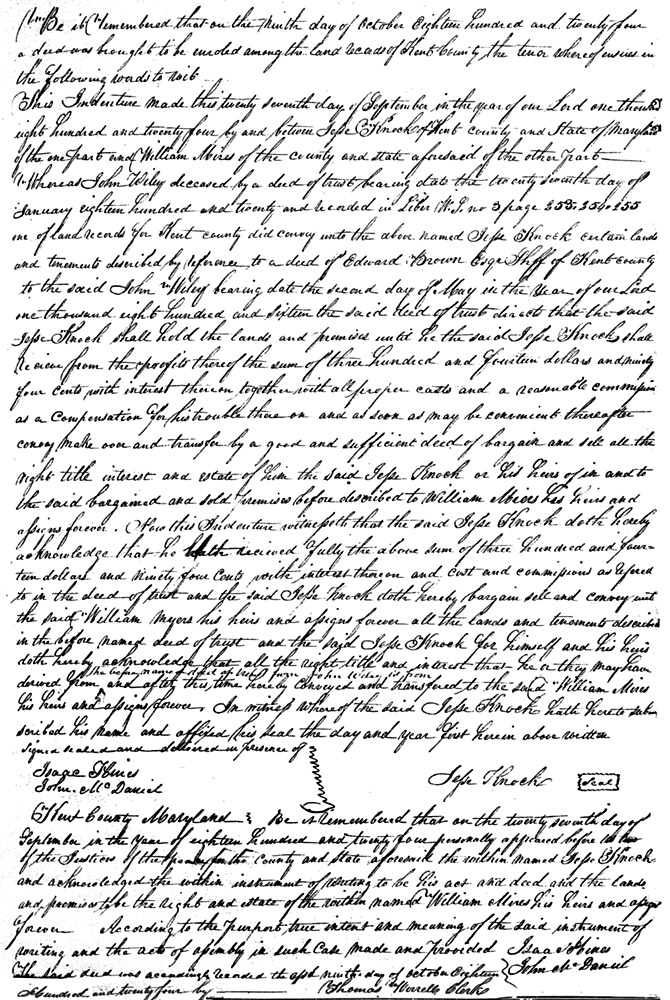 Be it Remembered that on the Ninth day of October Eighteen hundred and twenty four
a deed was brought to be enroled among the land records of Kent County, the tenor whereof ensues in
the following words to wit
This Indenture made this twenty seventh day of September in the year of our Lord one thousd
eight hundred and twenty four by and between Jesse Knock of Kent county and State of Maryland
of the one part and William Mires of the county and state aforesaid of the other part
Whereas John Wiley deceased by a deed of trust bearing date the twenty seventh day of
January eighteen hundred and twenty and recorded in Liber W.S. no 3 page 253, 254 & 255
one of land records for Kent county did convey unto the above named Jesse Knock certain lands
and tenements described by reference to a deed of Edward Brown Esqr Shff of Kent county
to the said John Wiley bearing date the second day of May in the Year of our Lord
one thousand eight hundred and sixteen the said deed of trust directs that the said
Jesse Knock shall hold the lands and premises until he the said Jesse Knock shall
receive from the profits thereof the sum of three hundred and fourteen dollars and ninety
four cents with interest thereon together with all proper costs and a reasonable commission
as a Compensation for his trouble there on and as soon as may be convenient thereafter
convey make over and transfer by a good and sufficient deed of bargain and sell all the
right title interest and estate of him the said Jesse Knock or his heirs of in and to
the said bargained and sold premises before described to William Mires his heirs and
assigns forever. Now this Indenture witnesseth that the said Jesse Knock doth hereby
acknowledge that he hath received fully the above sum of three hundred and four-
teen dollars and ninety four Cents with interest thereon and cost and commissions as refered
to in the deed of trust and the said Jesse Knock doth hereby bargain sell and convey unto
the said William Myers his heirs and assigns forever all the lands and tenements described
in the before named deed of trust and the said Jesse Knock for himself and his heirs
doth hereby acknowledge that all the right title and interest that he or they may have
the before named deed of trust from John Wiley is from
derived from and after this time hereby conveyed and transfered to the said William Mires
his heirs and assigns forever. In witness whereof the said Jesse Knock hath hereto sub-
scribed his name and affixed his seal the day and year first herein above written
Signed sealed and delivered in presence of
Isaac Hines
John McDaniel
Jesse Knock seal
Kent County Maryland: Be it remembered that on the twenty seventh day of
September in the Year of eighteen hundred and twenty four personally appeared before us two
of the Justices of the peace for the County and State aforesaid the within named Jesse Knock
and acknowledged the within instrument of writing to be his act and deed and the lands
and premises to be the right and estate of the within named William Mires his heirs and assigns
forever According to the purport true intent and meaning of the said instrument of
writing and the acts of assembly in such Case made and provided Isaac Hines
John McDaniel
The said deed was accordingly recorded the afsd ninth day of October Eighteen
Hundred and twenty four by Thomas Worrell Clerk